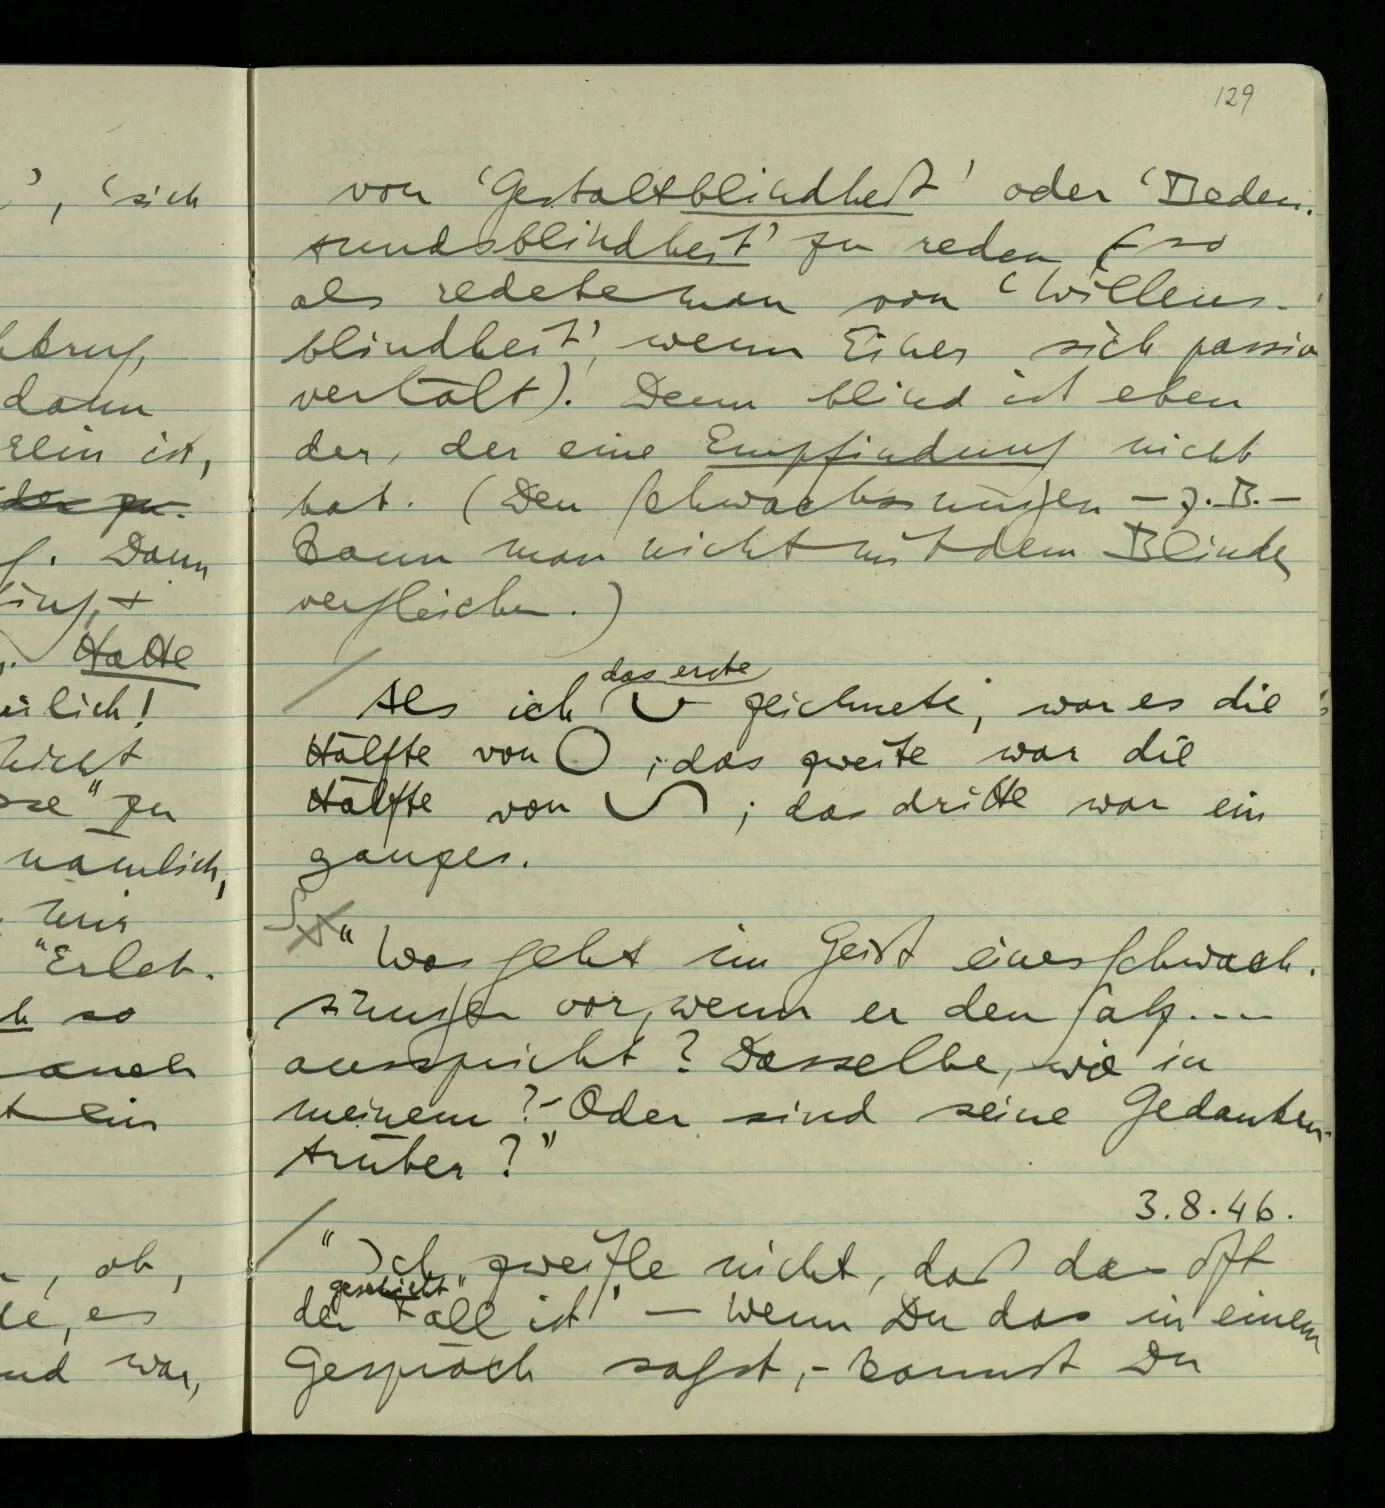 129
von 'Gestaltblindheit' oder 'Bedeu-
tungsblindheit' zu reden (so
als redete man von 'Willens-
blindheit', wenn Einer sich passiv
verhält). Denn blind ist eben
der, der eine Empfindung nicht
hat. (Den Schwachsinnigen – z.B. –
kann man nicht mit dem Blinden
vergleichen.)
das erste
/ Als ich zeichnete, war es die
Hälfte von ; das zweite war die
Hälfte von ; das dritte war ein
ganzes.
"Was geht im Geist eines Schwach-
sinnigen vor, wenn er den Satz ....
ausspricht? Dasselbe, wie in
meinem? – Oder sind seine Gedanken
trüber?"
3.8.46.
/ "Ich zweifle nicht, daß das oft
geschieht"
der Fall ist' – Wenn Du das in einem
Gespräch sagst, – kannst Du
', 'sich
dann
ist,
Dann
Hatte
nicht
" zu
nämlich,
mir
"Erleb-
so
auch
ein
, ob,
, es
und war,